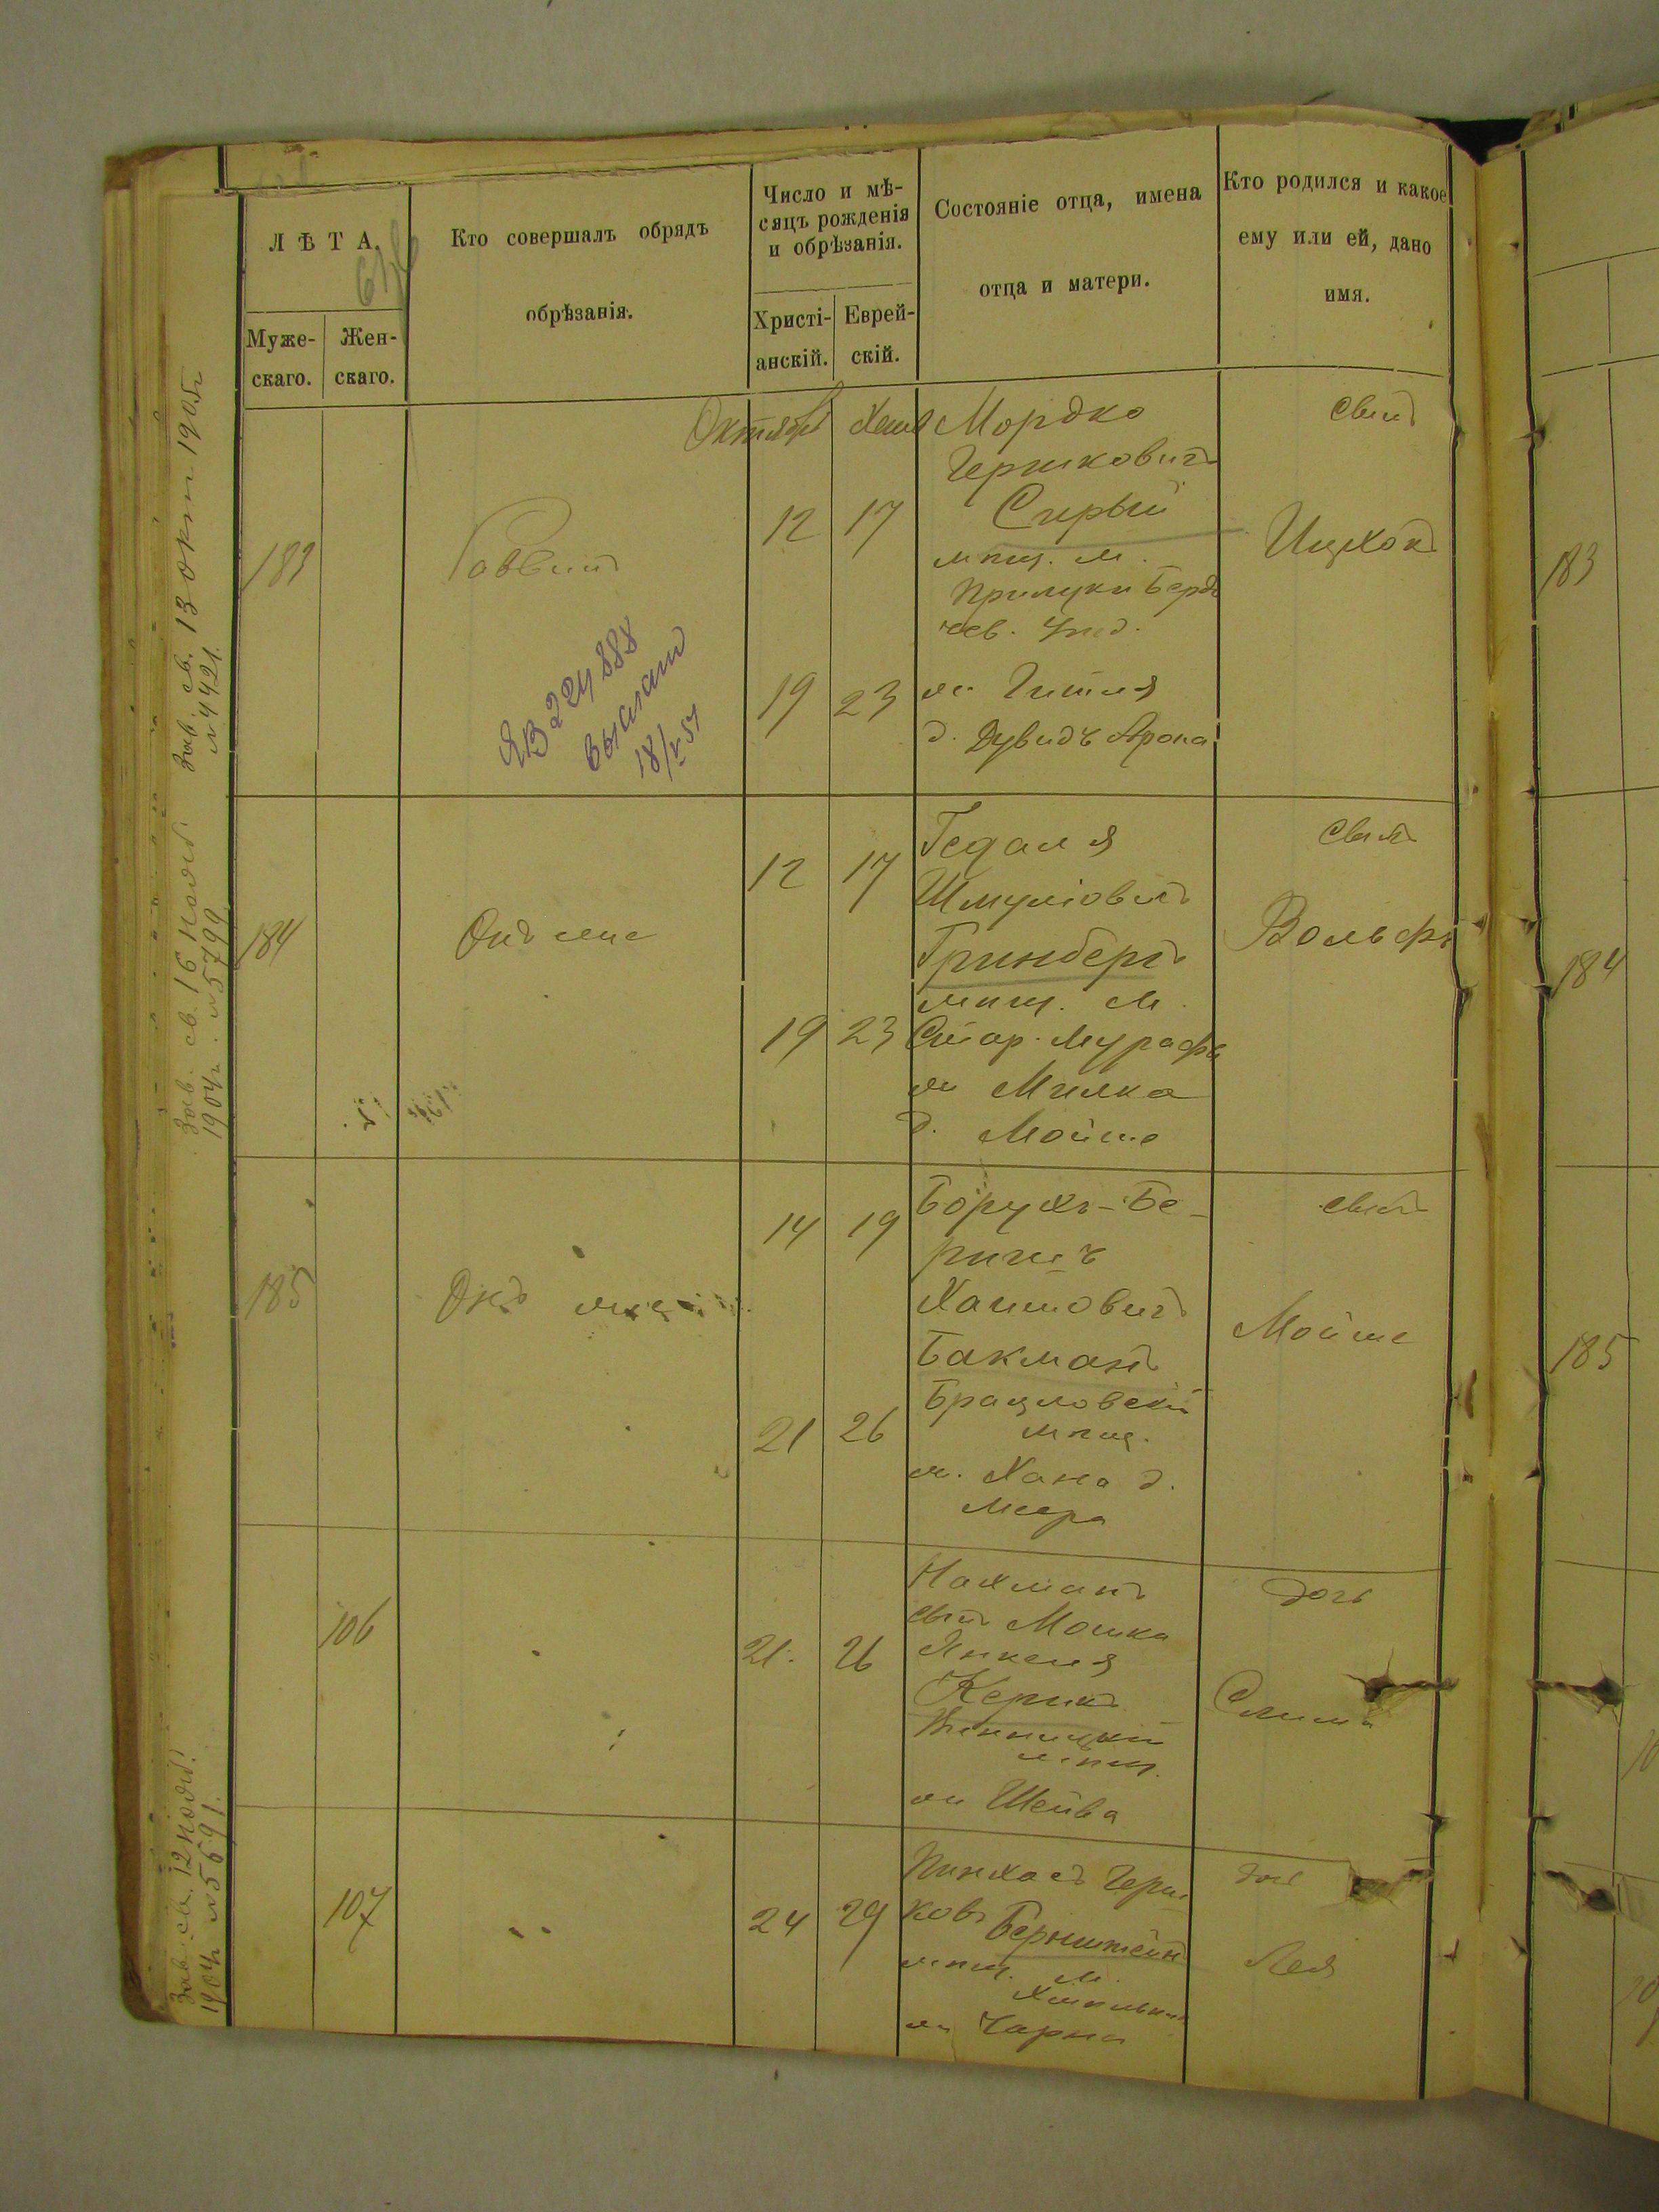 ЛѢТА.
Муже-
скаго.
Жен-
скаго.
Кто совершалъ обрядъ
обрѣзанія.
Число и мѣ-
сяцъ рожденія
и обрѣзанія.
Христі-
анскій.
Еврей-
скій.
Состояніе отца, имена
отца и матери.
Кто родился и какое
ему или ей, дано
имя.
Октябрь
183
Раввинъ
12 17
19 23
Мордко
Гершковичъ
Сирый
мѣщ. м.
Прилуки Берд
чев. уѣзд.
м Гитля
д. Дувидъ Арона
сынъ
Ицхокъ
ЯВ 224888
выслано
18/V 51
184
Онъ же
12 17
19 23
Гедаля
Шмуліовичъ
Гринбергъ
мѣщ. м.
Стар. Мурафы
м Милка
д. Мойше
сынъ
Вольфъ
185
Онъ же
14 19
21 26
Борухъ-Бе-
ришъ
Хаимовичъ
Бакманъ
Брацловскій
мѣщ.
м. Хана д.
Меера
сынъ
Мойше
106
21. 26
Нахманъ
сынъ Мошка
Янкеля
Винницкій
мѣщ.
м Шейва
дочь
107
24 29
Пинхасъ Герш
ковъ Бернштейнъ
мѣщ. м.
м Чарна
дочь
Лея
Зав. св. 13 окт 1905г
№ 4421.
Зав. св. 16 нояб
1904г. № 5799
Зав. св. 12 нояб.
1904г № 5691.
183
184
185